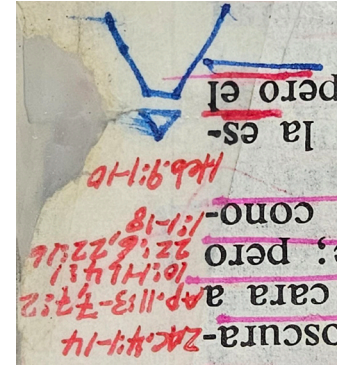 oscura- Zac.4:1-14
cara a Ap.11:3-7,7:2
; pero 10:1-11,4:1
22:6,22:16
cono- 1:1-18
Heb.9:1-10
la es-
pero el